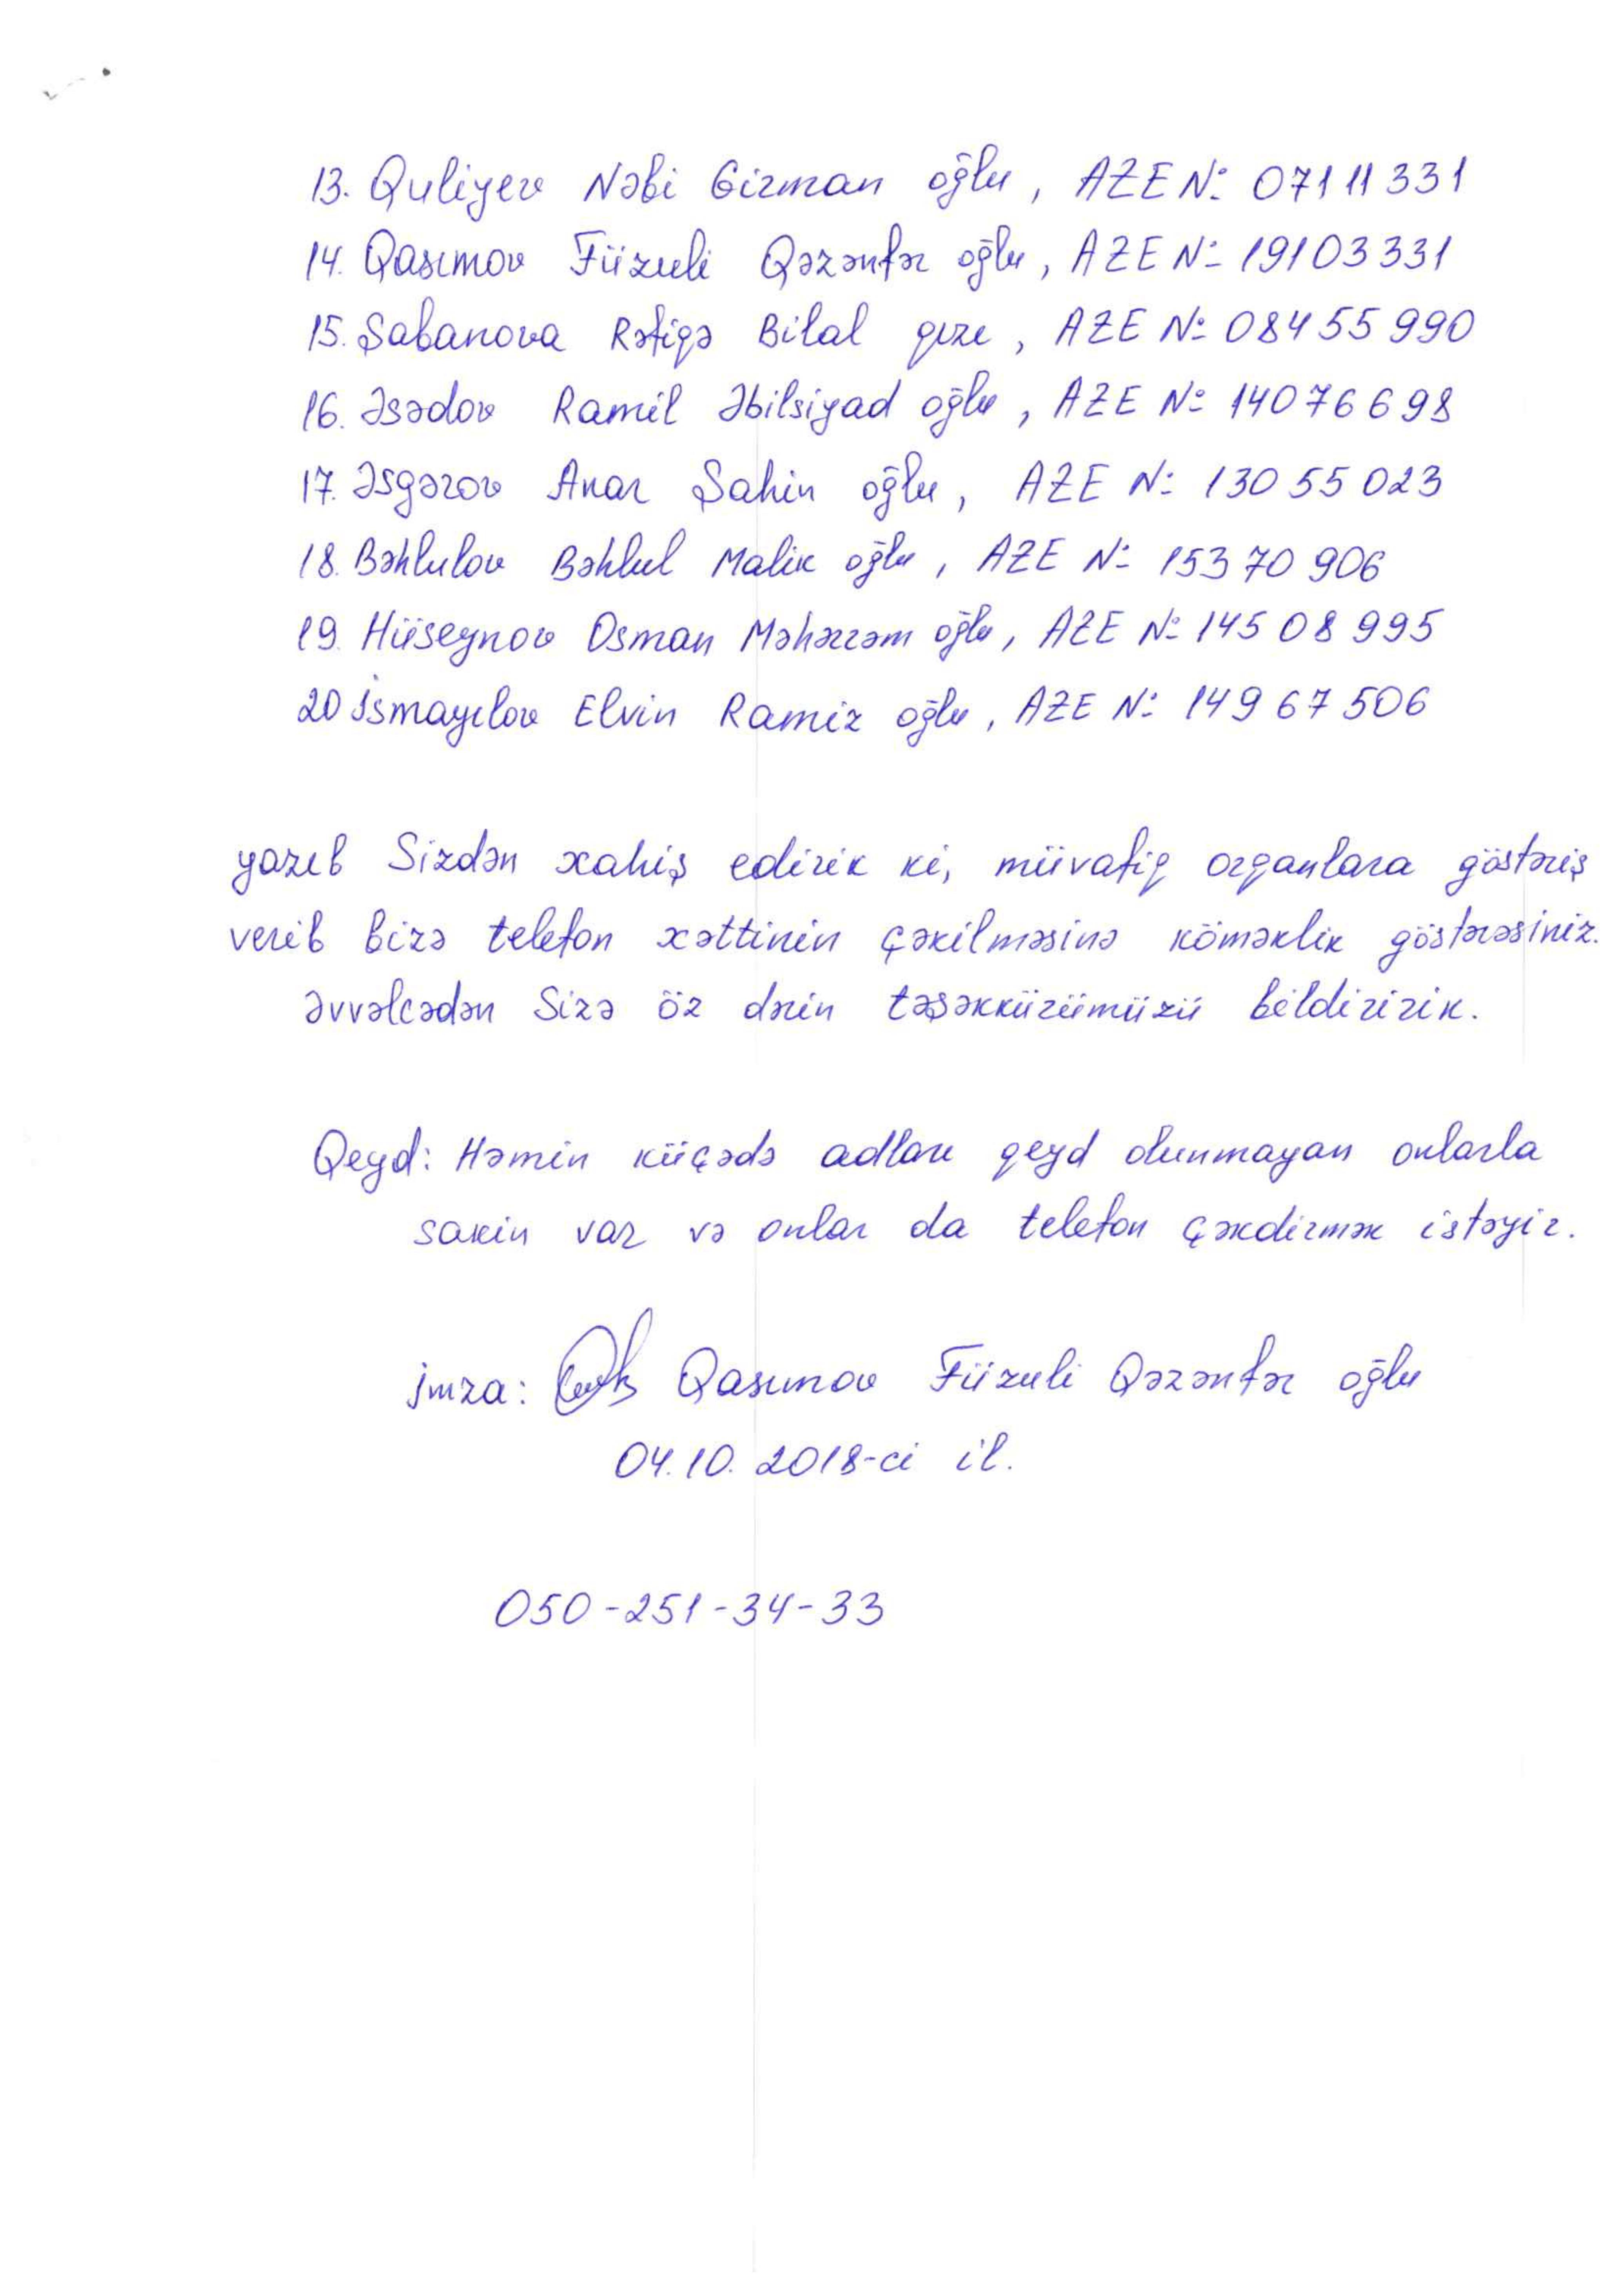 13. Quliyev Nəbi Girman oğlu, AZE №: 07111331
14. Qasımov Füzuli Qəzənfər oğlu, AZE № 19103331
15. Şabanova Rəfiqə Bilal qızı, AZE № 08455990
16. Əsədov Ramil Əbilsiyad oğlu, AZE № 14076698
17. Əsgərov Anar Şahin oğlu, AZE №: 13055023
18. Bəhlulov Bəhlul Malik oğlu, AZE № 15370906
19. Hüseynov Osman Məhərrəm oğlu, AZE № 14508995
20 İsmayılov Elvin Ramiz oğlu, AZE №: 14967506
yazıb Sizdən xahiş edirik ki, müvafiq orqanlara göstəriş
verib bizə telefon xəttinin çəkilməsinə köməklik göstərəsiniz.
Əvvəlcədən Sizə öz dərin təşəkkürümüzü bildiririk.
Qeyd: Həmin küçədə adları qeyd olunmayan onlarla
sakin var və onlar da telefon çəkdirmək istəyir.
imza: Qasımov Füzuli Qəzənfər oğlu
04.10.2018-ci il.
050-251-34-33